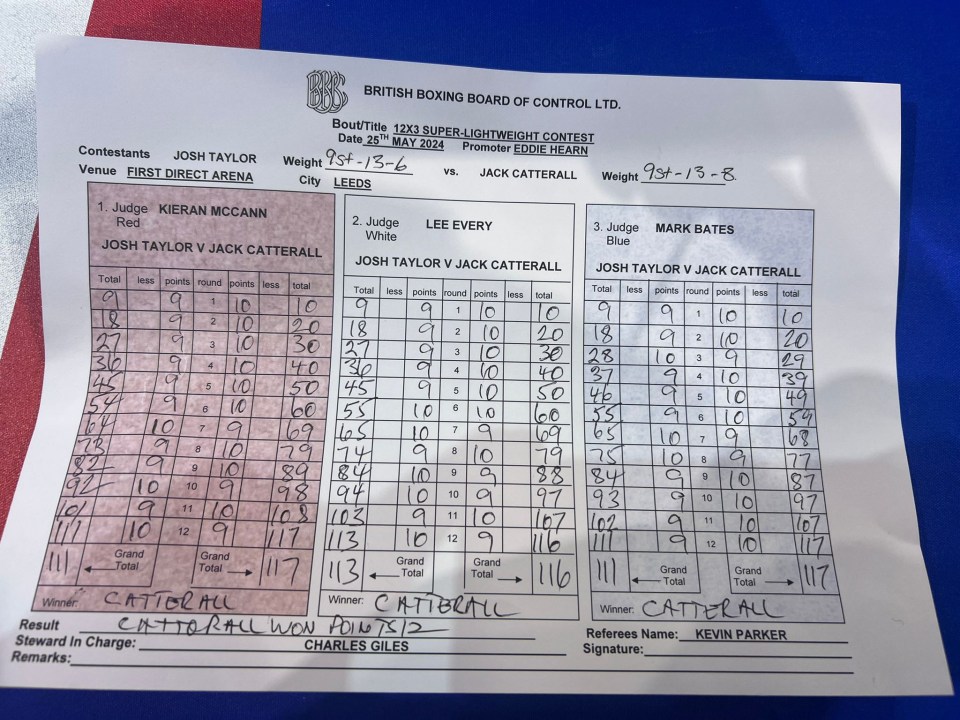 BBBC
BRITISH BOXING BOARD OF CONTROL LTD.
Bout/Title 12X3 SUPER-LIGHTWEIGHT CONTEST
Date 25TH MAY 2024 Promoter EDDIE HEARN
Contestants JOSH TAYLOR Weight 9st-13-6 vs. JACK CATTERALL Weight 9st-13-8
Venue FIRST DIRECT ARENA City LEEDS
1. Judge KIERAN MCCANN
Red
JOSH TAYLOR V JACK CATTERALL
Total less points round points less total
9 9 1 10 10
18 9 2 10 20
27 9 3 10 30
36 9 4 10 40
45 9 5 10 50
54 9 6 10 60
64 10 7 9 69
73 9 8 10 79
82 9 9 10 89
92 10 10 9 98
101 9 11 10 108
111 10 12 9 117
111 Grand Total Grand Total 117
Winner: CATTERALL
2. Judge LEE EVERY
White
JOSH TAYLOR V JACK CATTERALL
Total less points round points less total
9 9 1 10 10
18 9 2 10 20
27 9 3 10 30
36 9 4 10 40
45 9 5 10 50
55 10 6 10 60
65 10 7 9 69
74 9 8 10 79
84 10 9 9 88
94 10 10 9 97
103 9 11 10 107
113 10 12 9 116
113 Grand Total Grand Total 116
Winner: CATTERALL
3. Judge MARK BATES
Blue
JOSH TAYLOR V JACK CATTERALL
Total less points round points less total
9 9 1 10 10
18 9 2 10 20
28 10 3 9 29
37 9 4 10 39
46 9 5 10 49
55 9 6 10 59
65 10 7 9 68
75 10 8 9 77
84 9 9 10 87
93 9 10 10 97
102 9 11 10 107
111 9 12 10 117
111 Grand Total Grand Total 117
Winner: CATTERALL
Result CATTORALL WON POINTS/12
Referees Name: KEVIN PARKER
Steward In Charge: CHARLES GILES
Signature:
Remarks: